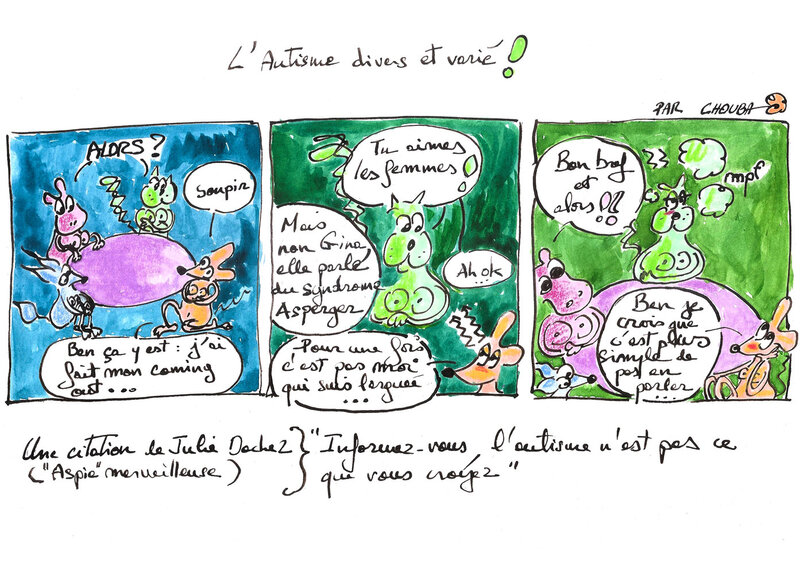 L'Autisme divers et varié !
PAR CHOUBA
ALORS ?
Soupir
Ben ça y est : j'ai
fait mon coming
out ...
Tu aimes
les femmes !
Mais
non Gina
elle parle
du syndrome
Asperger
Ah ok
...
Pour une fois
c'est pas moi
qui suis larguée
...
Bon bref
et
alors ?!!
mpf
Ben je
crois que
c'est plus
simple de
pas en
parler ...
Une citation de Julie Dachez } "Informez-vous, l'autisme n'est pas ce
("Aspie" merveilleuse) que vous croyez"